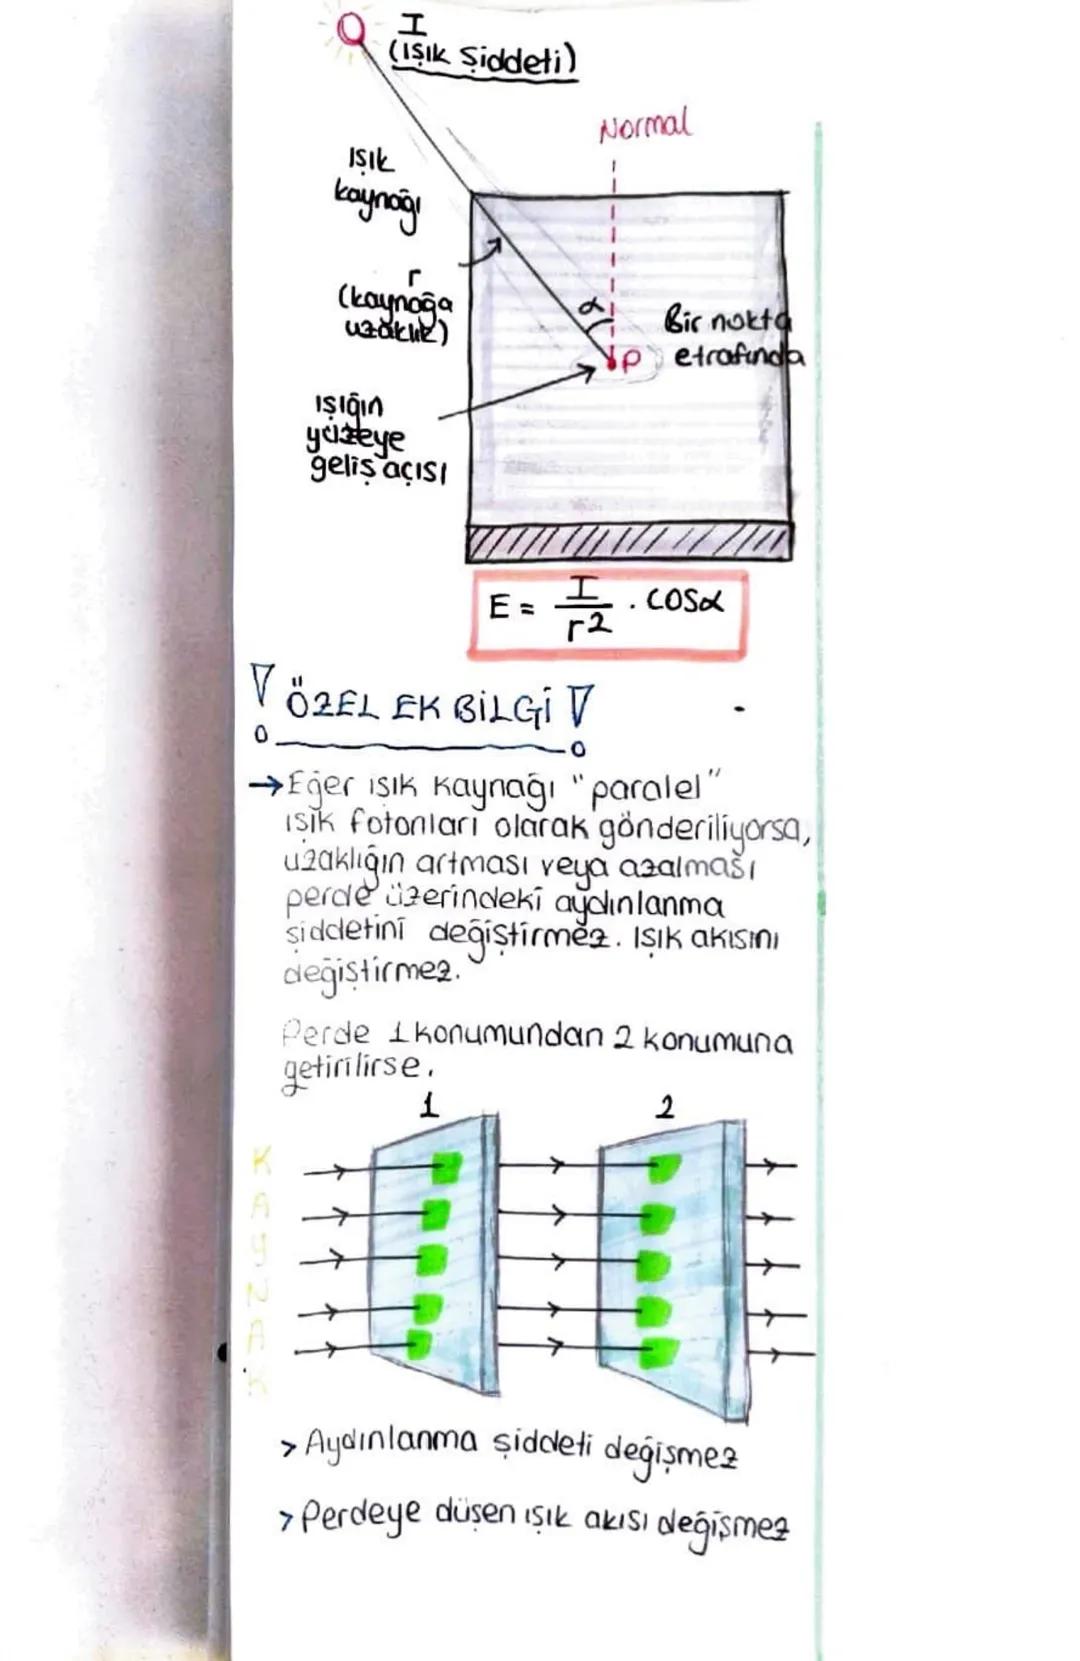 I
(Işık Şiddeti)
Normal
Işık
kaynağı
r
(kaynağa
uzaklık)
α
Bir nokta
P
etrafında
ışığın
yüzeye
geliş açısı
E = I/r² . cosα
! ÖZEL EK BİLGİ !
→ Eğer ışık kaynağı "paralel"
ışık fotonları olarak gönderiliyorsa,
uzaklığın artması veya azalması
perde üzerindeki aydınlanma
şiddetini değiştirmez. Işık akısını
değiştirmez.
Perde 1 konumundan 2 konumuna
getirilirse.
1 2
KAYNAK
> Aydınlanma şiddeti değişmez
> Perdeye düşen ışık akısı değişmez